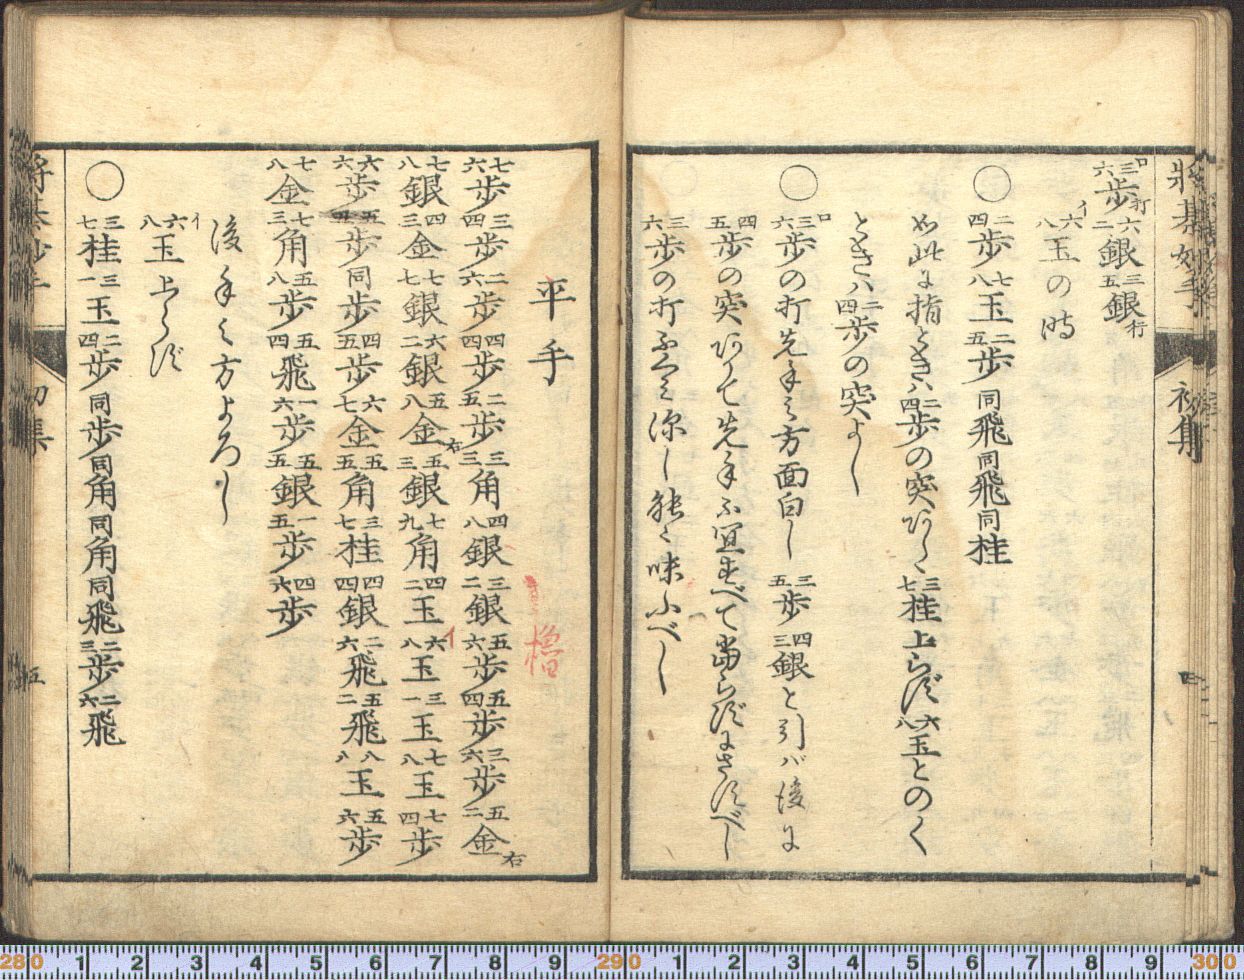 将棊妙手 初集 四
三六歩打 六二銀 三五銀行
六八玉の時
〇二四歩 七八玉 二五歩 同飛 同飛 同桂
如此に指ときハ二四歩の突
三七桂上らず六八玉とのく
ときハ二四歩の突よし
〇三六歩の打先手の方面白し 三五歩 四三銀と引バ後に
四五歩の突
三六歩の打
平手
七六歩 三四歩 二六歩 四四歩 二五歩 三三角 四八銀 三二銀 五六歩 五四歩 三六歩 五二金右
七八銀 四三金 七七銀 六二銀 五八金右 五三銀 七九角 四二玉 六八玉 三一玉 七八玉 七四歩
六六歩 五五歩 同歩 四五歩 六七金 五五角 三七桂 四四銀 二六飛 五二飛 八八玉 五六歩
七八金 七三角 五八歩 五四飛 一六歩 五五銀 一五歩 四六歩
後手の方よろし
六八玉上らず
〇三七桂 三一玉 二四歩 同歩 同角 同角 同飛 二三歩 二六飛
櫓
将棊妙手 初集 五
280 1 2 3 4 5 6 7 8 9 290 1 2 3 4 5 6 7 8 9 300